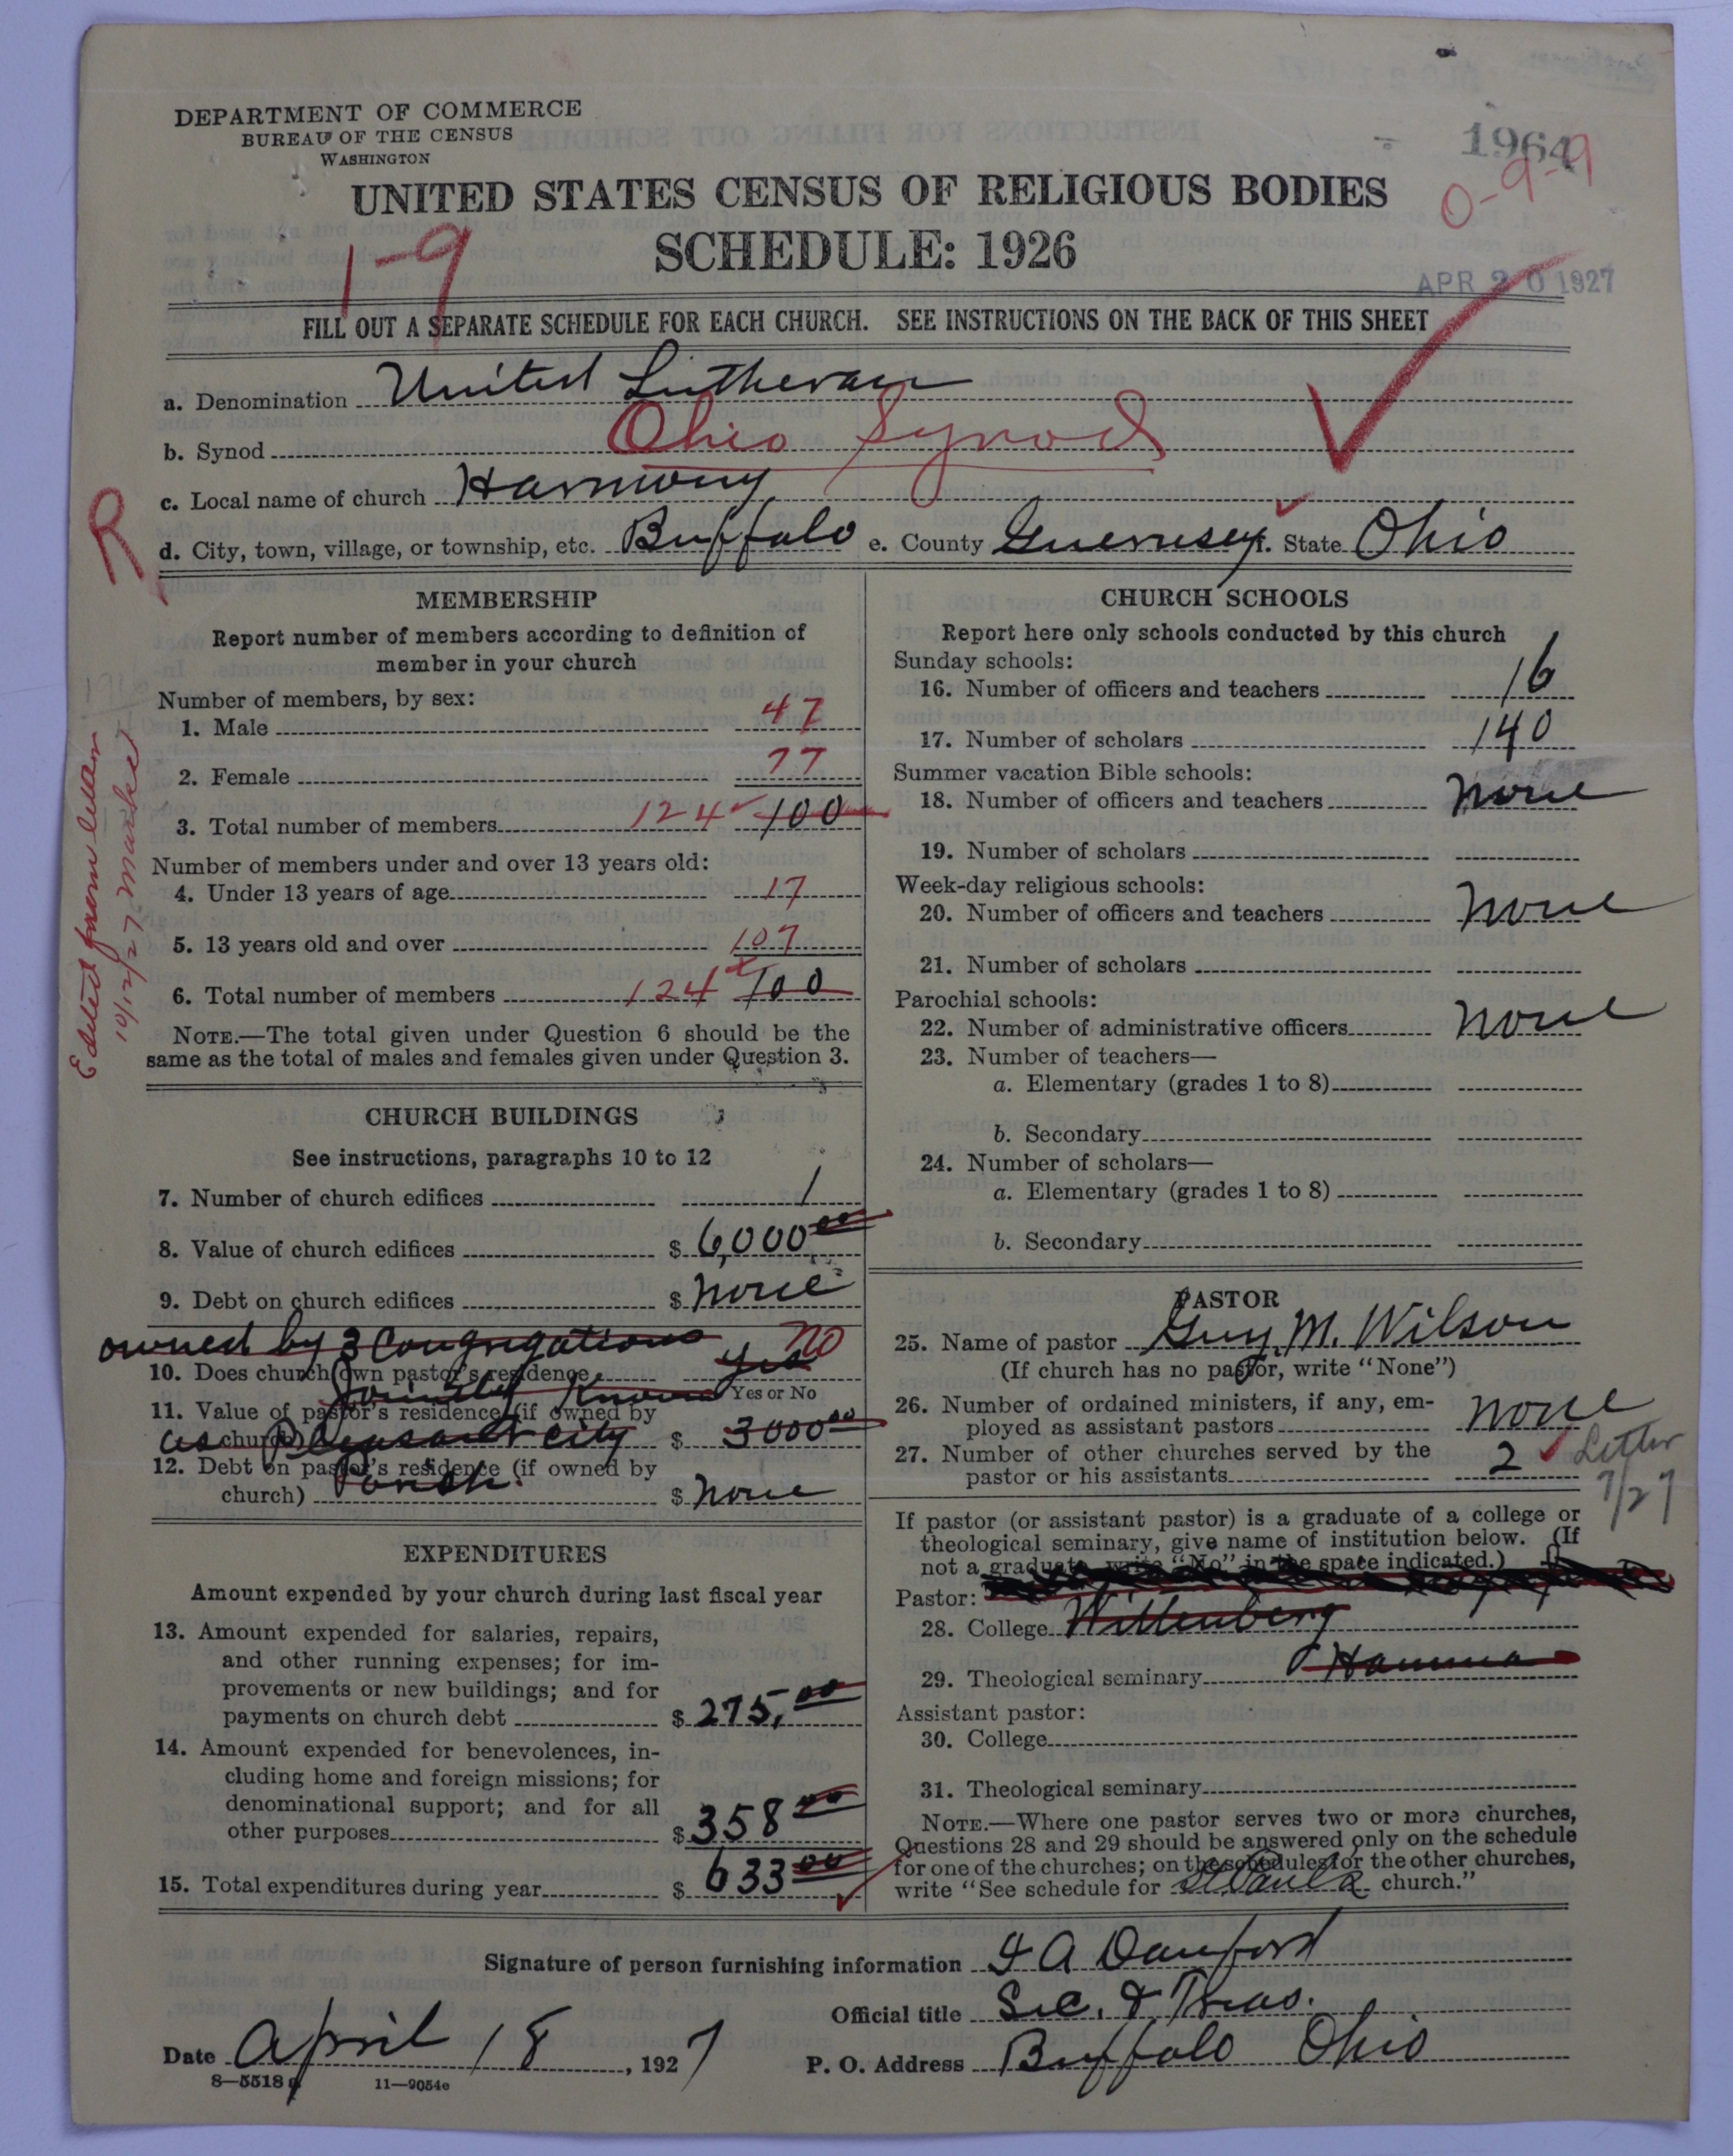 DEPARTMENT OF COMMERCE
BUREAU OF THE CENSUS
WASHINGTON
1964
0-9-9
UNITED STATES CENSUS OF RELIGIOUS BODIES
SCHEDULE: 1926
1-9
APR 20 1927
FILL OUT A SEPARATE SCHEDULE FOR EACH CHURCH. SEE INSTRUCTIONS ON THE BACK OF THIS SHEET
a. Denomination United Lutheran
b. Synod Ohio Synod
c. Local name of church Harmony
R
d. City, town, village, or township, etc. Buffalo e. County Guernsey f. State Ohio
MEMBERSHIP
Report number of members according to definition of
member in your church
Number of members, by sex:
1. Male 47
2. Female 77
3. Total number of members 124 100
Number of members under and over 13 years old:
4. Under 13 years of age 17
5. 13 years old and over 107
6. Total number of members 124 100
NOTE.—The total given under Question 6 should be the
same as the total of males and females given under Question 3.
Edited from letter
10/12/27 Market
CHURCH BUILDINGS
See instructions, paragraphs 10 to 12
7. Number of church edifices 1
8. Value of church edifices $ 6,000.00
9. Debt on church edifices $ none
owned by 3 Congregations
10. Does church own pastor's residence Yes no
Jointly Known Yes or No
11. Value of pastor's residence (if owned by
church) $ 3000.00
as Pleasant City
12. Debt on pastor's residence (if owned by
Parish.
church) $ none
EXPENDITURES
Amount expended by your church during last fiscal year
13. Amount expended for salaries, repairs,
and other running expenses; for im-
provements or new buildings; and for
payments on church debt $ 275.00
14. Amount expended for benevolences, in-
cluding home and foreign missions; for
denominational support; and for all
other purposes $ 358.00
15. Total expenditures during year $ 633.00
CHURCH SCHOOLS
Report here only schools conducted by this church
Sunday schools:
16. Number of officers and teachers 16
17. Number of scholars 140
Summer vacation Bible schools:
18. Number of officers and teachers none
19. Number of scholars
Week-day religious schools:
20. Number of officers and teachers none
21. Number of scholars
Parochial schools:
22. Number of administrative officers none
23. Number of teachers—
a. Elementary (grades 1 to 8)
b. Secondary
24. Number of scholars—
a. Elementary (grades 1 to 8)
b. Secondary
PASTOR
25. Name of pastor Guy M. Wilson
(If church has no pastor, write "None")
26. Number of ordained ministers, if any, em-
ployed as assistant pastors none
27. Number of other churches served by the
pastor or his assistants 2 Letter
7/27
If pastor (or assistant pastor) is a graduate of a college or
theological seminary, give name of institution below. (If
not a graduate, write "No" in the space indicated.)
Pastor:
28. College Wittenberg
29. Theological seminary Hamma
Assistant pastor:
30. College
31. Theological seminary
NOTE.—Where one pastor serves two or more churches,
Questions 28 and 29 should be answered only on the schedule
for one of the churches; on the schedules for the other churches,
write "See schedule for St Pauls church."
Signature of person furnishing information I A Danford
Official title Sec. & Treas.
Date April 18, 1927 P. O. Address Buffalo Ohio
8—5518 a 11—9054e